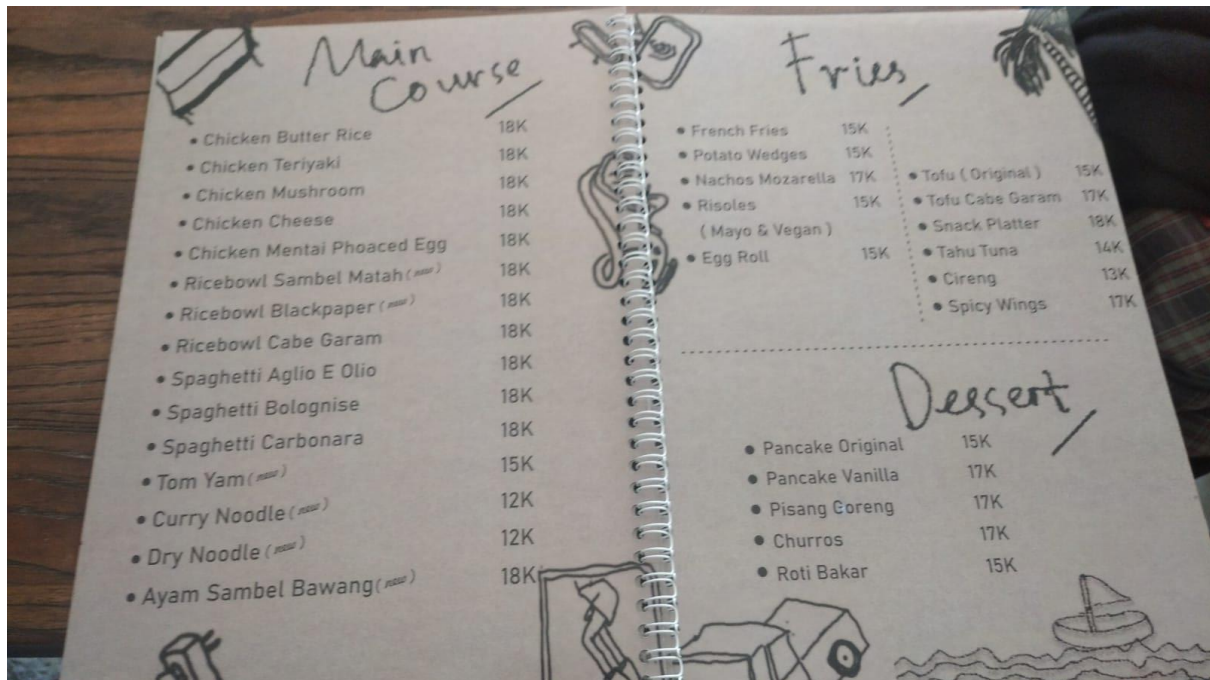 Main
Course
• Chicken Butter Rice 18K
• Chicken Teriyaki 18K
• Chicken Mushroom 18K
• Chicken Cheese 18K
• Chicken Mentai Phoaced Egg 18K
• Ricebowl Sambel Matah (new) 18K
• Ricebowl Blackpaper (new) 18K
• Ricebowl Cabe Garam 18K
• Spaghetti Aglio E Olio 18K
• Spaghetti Bolognise 18K
• Spaghetti Carbonara 18K
• Tom Yam (new) 15K
• Curry Noodle (new) 12K
• Dry Noodle (new) 12K
• Ayam Sambel Bawang (new) 18K
Fries
• French Fries 15K
• Potato Wedges 15K
• Nachos Mozarella 17K
• Risoles 15K
( Mayo & Vegan )
• Egg Roll 15K
• Tofu ( Original ) 15K
• Tofu Cabe Garam 17K
• Snack Platter 18K
• Tahu Tuna 14K
• Cireng 13K
• Spicy Wings 17K
Dessert
• Pancake Original 15K
• Pancake Vanilla 17K
• Pisang Goreng 17K
• Churros 17K
• Roti Bakar 15K